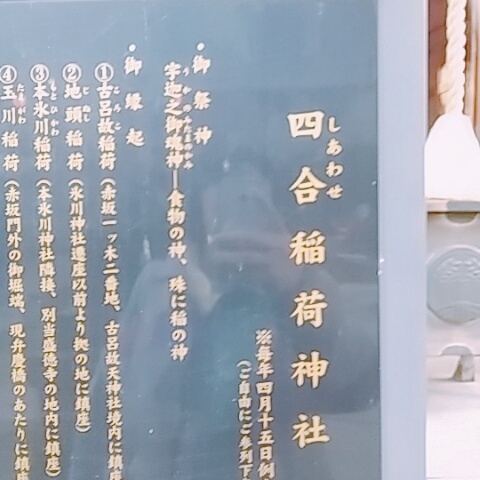 しあわせ
四合稲荷神社
※毎年四月十五日例
(ご自由にご参列下
・御祭神
うかのみたまのかみ
宇迦之御魂神―食物の神、殊に稲の神
・御縁起
ころこ
①古呂故稲荷(赤坂一ッ木二番地、古呂故天神社境内に鎮座
じぬし
②地頭稲荷(氷川神社遷座以前より拠の地に鎮座)
もとひかわ
③本氷川稲荷(本氷川神社隣接、別当盛徳寺の地内に鎮座)
たまがわ
④玉川稲荷(赤坂門外の御堀端、現弁慶橋のあたりに鎮座